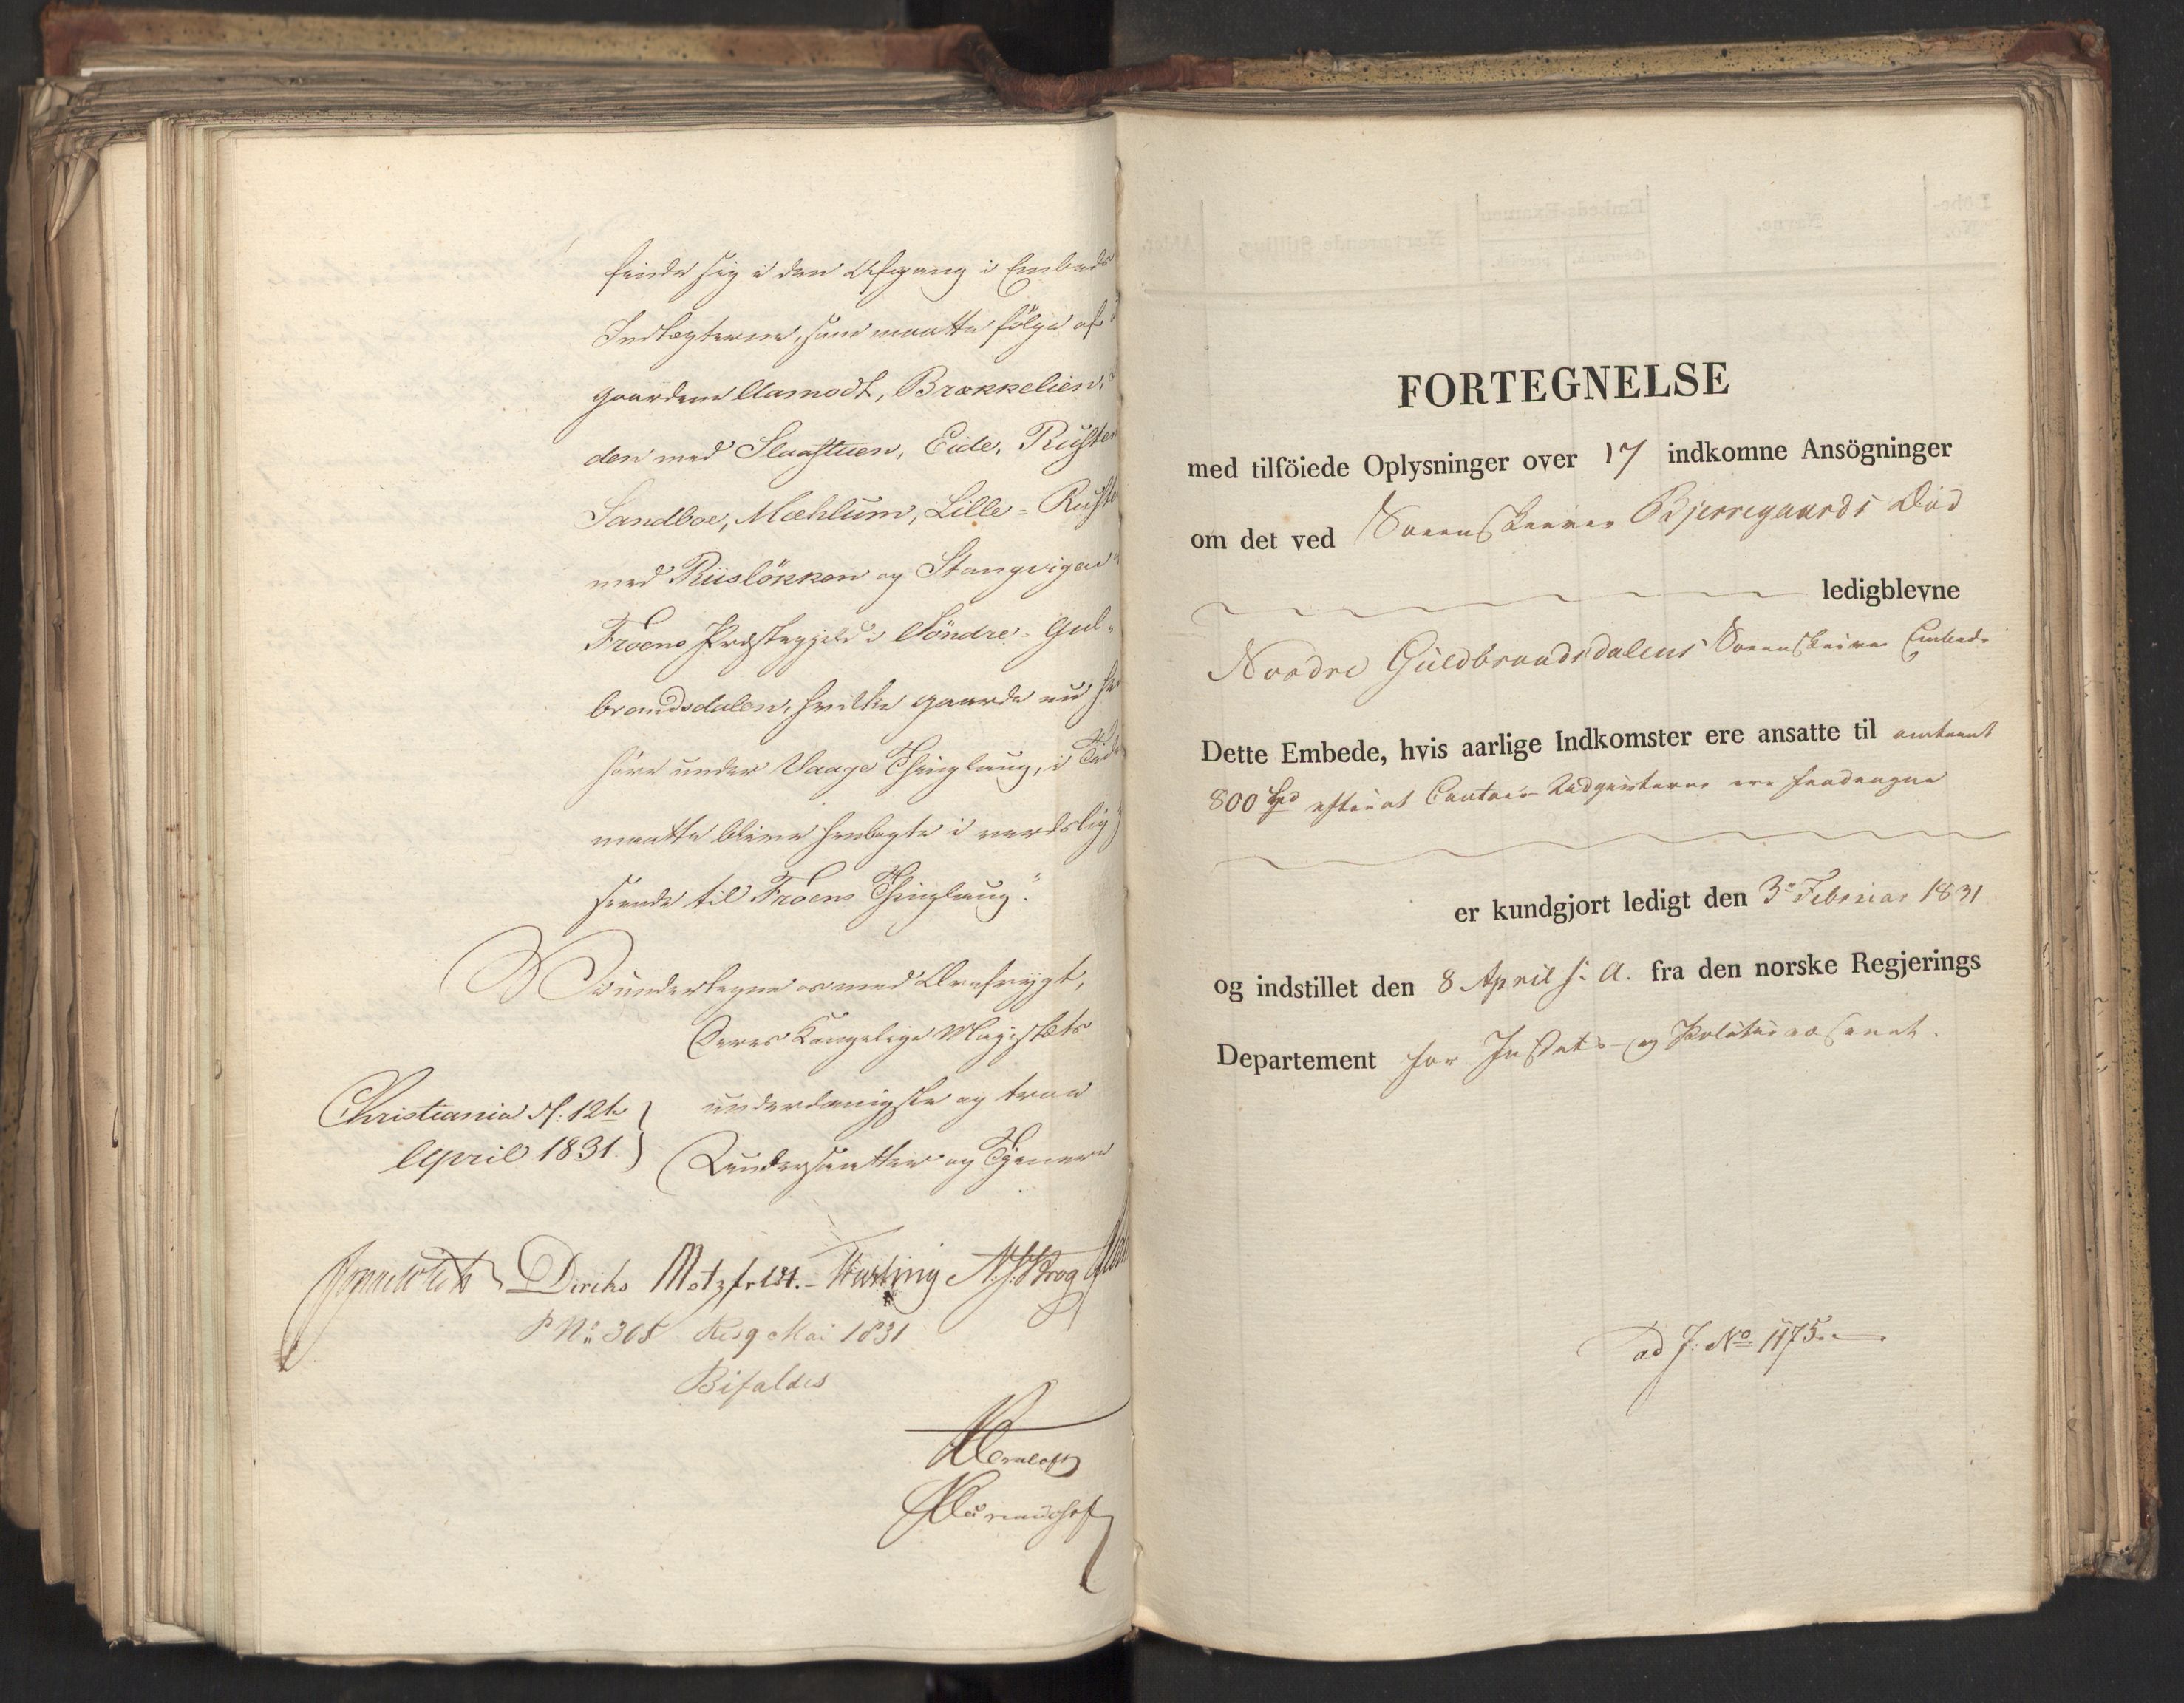 finde sig i den Afgang i Embeds
Indtægterne, som maatte følge af
gaardene Aamodt, Brækkelien,
den med Slaastuen, Eide, Rusten
Sandboe, Mæhlum, Lille-Rust
med Riislökken og Stangvigen
Froens Præstegjeld i Söndre-Gul-
brandsdalen, hvilke gaarde nu
høre under Vaage Thinglaug, i Tid
maatte blive henlagte i verdslig
seende til Froens Thinglaug."
Vi undertegne os med Ærefrygt,
Deres Kongelige Majestæts
underdanigste og troe
Undersaatter og Tjenere
Christiania d: 12te
April 1831.
Diriks Motzfeldt. N. J. Krog
P No 305 Res 9 Mai 1831
Bifaldes
FORTEGNELSE
med tilföiede Oplysninger over 17 indkomne Ansögninger
om det ved Sorenskriver Bjerregaards Död
ledigblevne
Nordre Guldbrandsdalens Sorenskriver Embede
Dette Embede, hvis aarlige Indkomster ere ansatte til omtrent
800 Spd efterat Contoir Udgivterne ere fradragne
er kundgjort ledigt den 3e Februar 1831
og indstillet den 8 April s: A. fra den norske Regjerings
Departement for Justits- og Politievæsenet.
ad J: No 1175.